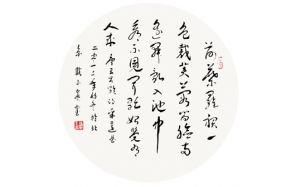 荷葉羅裙一
色裁芙蓉向臉兩
邊開亂入池中
看不見聞歌始覺有
人來 唐王昌齡詩采蓮曲
二零一二年
京